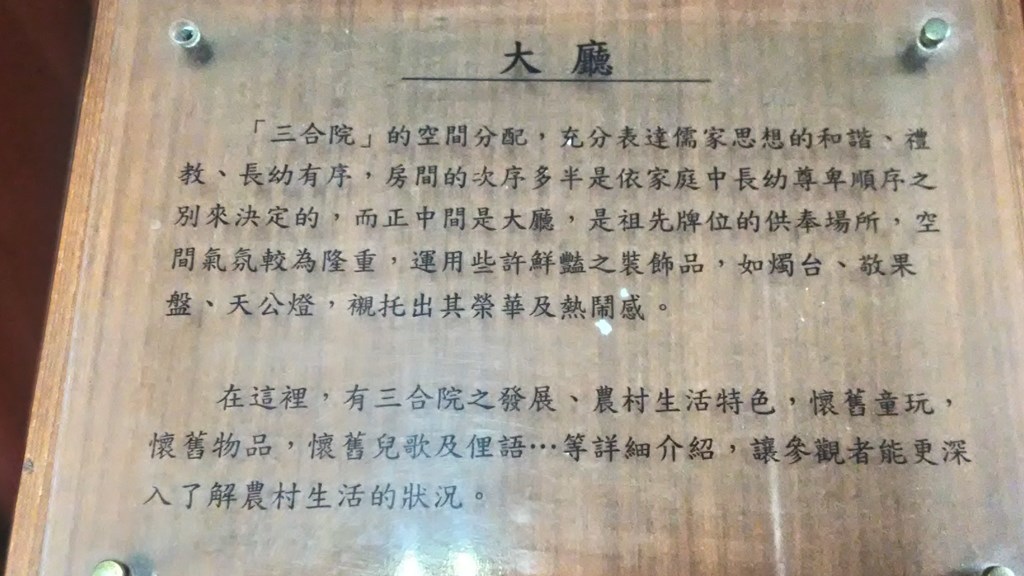 大廳
「三合院」的空間分配，充分表達儒家思想的和諧、禮
教、長幼有序，房間的次序多半是依家庭中長幼尊卑順序之
別來決定的，而正中間是大廳，是祖先牌位的供奉場所，空
間氣氛較為隆重，運用些許鮮豔之裝飾品，如燭台、敬果
盤、天公燈，襯托出其榮華及熱鬧感。
在這裡，有三合院之發展、農村生活特色，懷舊童玩，
懷舊物品，懷舊兒歌及俚語…等詳細介紹，讓參觀者能更深
入了解農村生活的狀況。